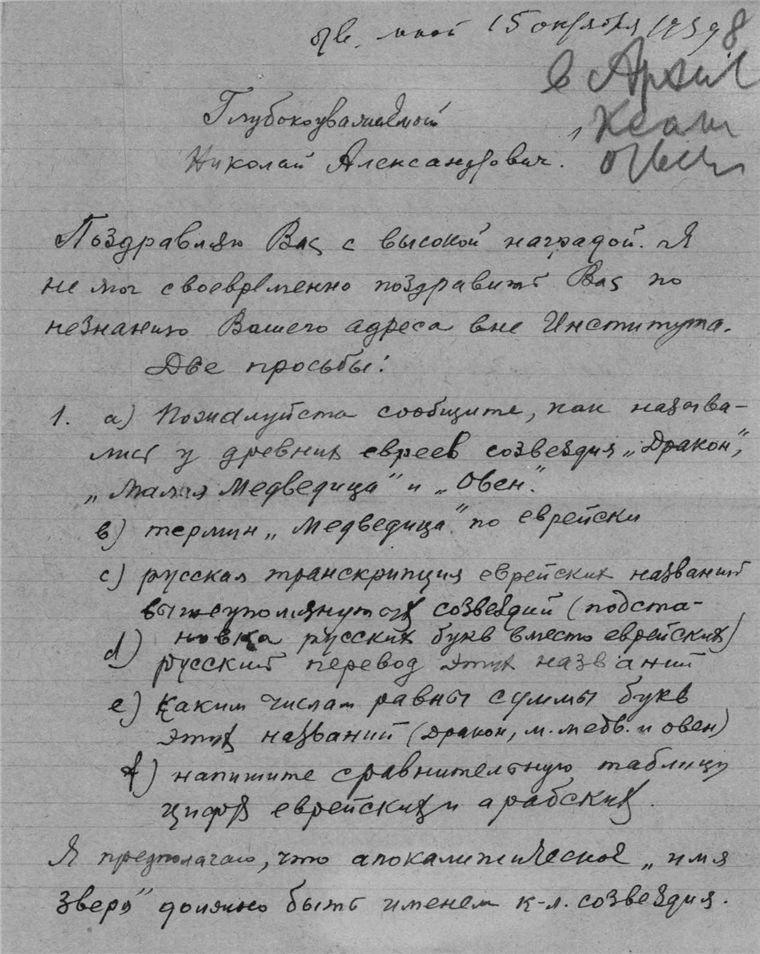 отв. мной 15 октября
в Архив
Глубокоуважаемый
Николай Александрович.
Поздравляю Вас с высокой наградой. Я
не мог своевременно поздравить Вас по
незнанию Вашего адреса вне Института.
Две просьбы:
1. а) Пожалуйста сообщите, как называ-
лись у древних евреев созвездия „Дракон",
„Малая Медведица" и „Овен".
в) термин „Медведица" по еврейски
с) русская транскрипция еврейских названий
вышеупомянутых созвездий (подста-
новка русских букв вместо еврейских)
d) русский перевод этих названий
е) каким числам равны суммы букв
этих названий (Дракон, м. медв. и овен)
f) напишите сравнительную таблицу
цифр еврейских и арабских.
Я предполагаю, что апокалиптическое „имя
зверя" должно быть именем к-л. созвездия.